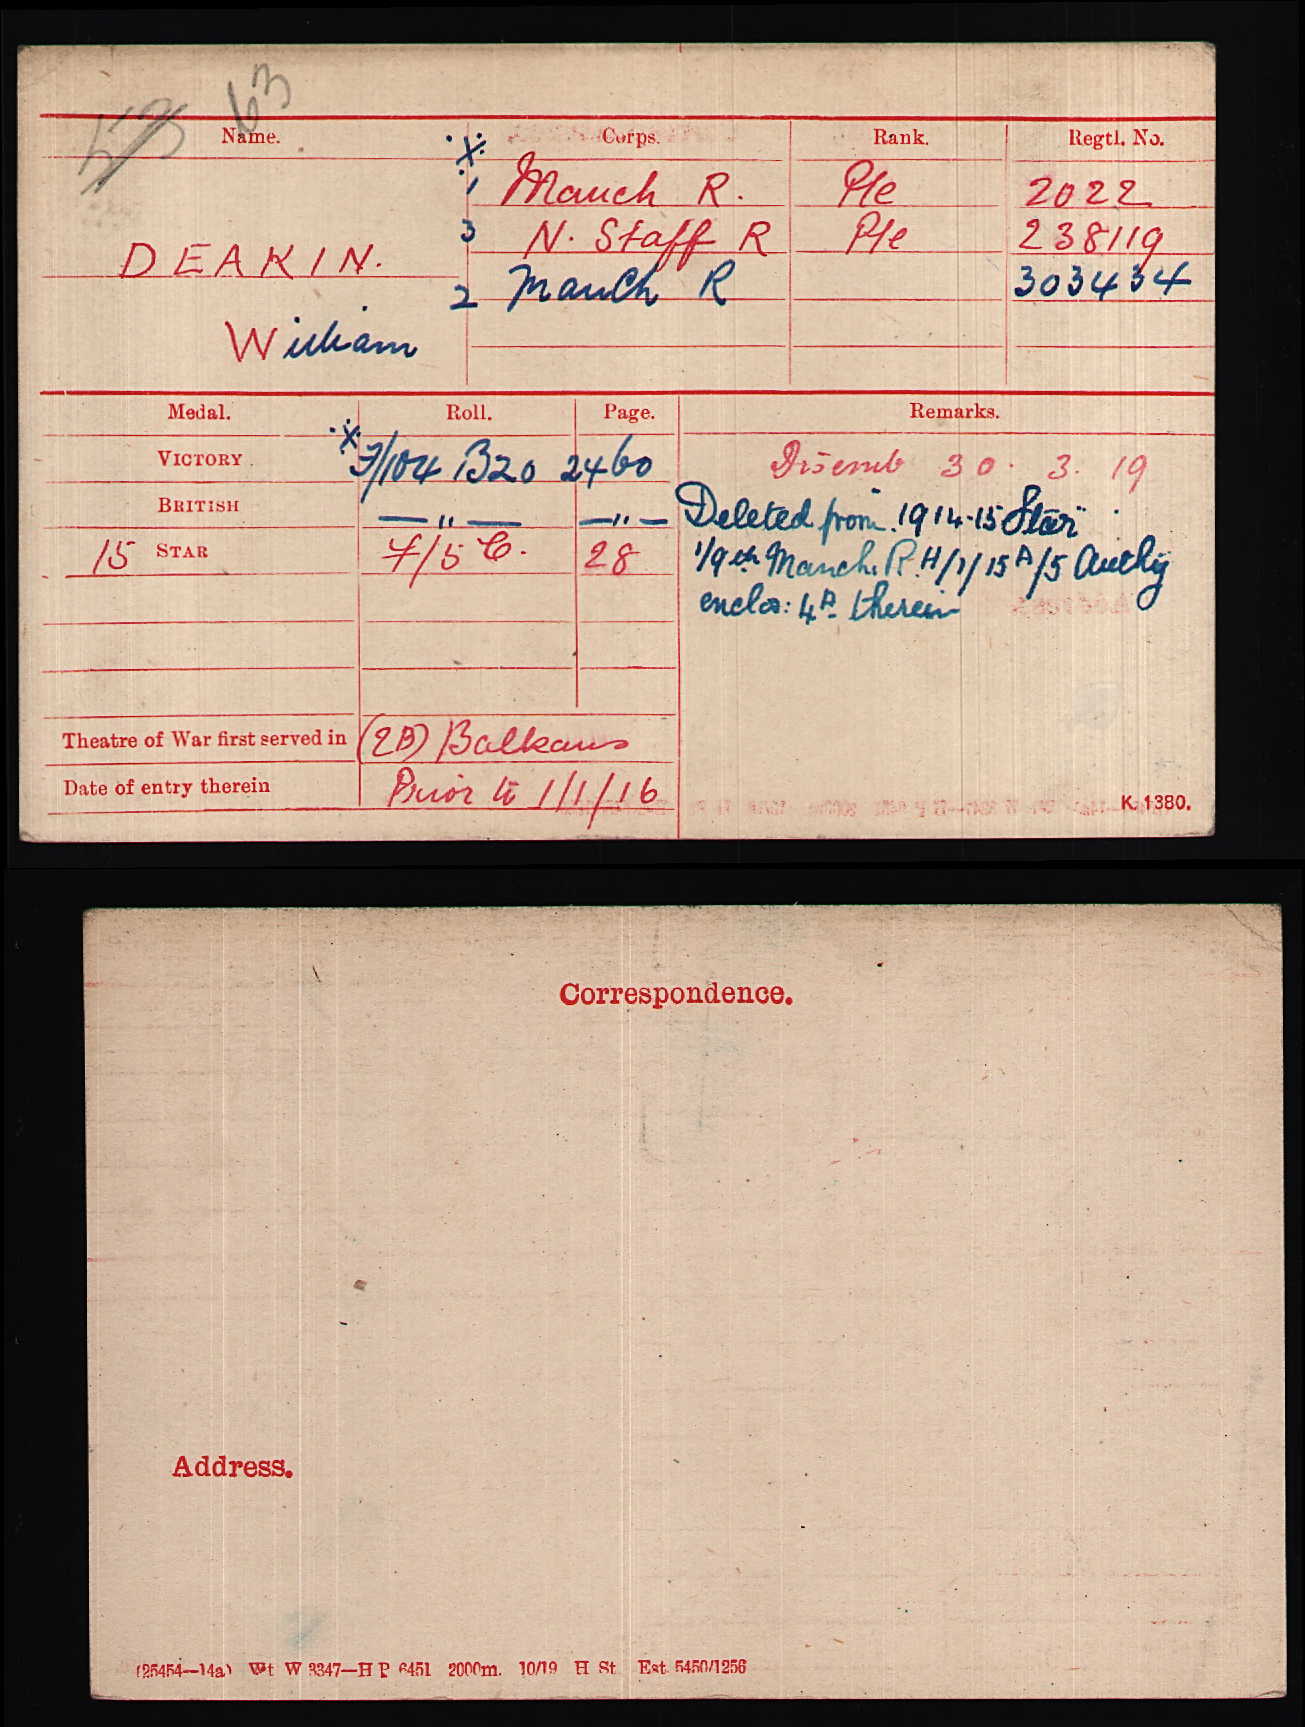 63
Name. Corps. Rank. Regtl. No.
1 Manch R. Pte 2022
3 N. Staff R Pte 238119
DEAKIN.
2 Manch R 303434
William
Medal. Roll. Page. Remarks.
VICTORY F/104 B20 2460 Disemb 30. 3. 19
BRITISH —"— —"— Deleted from 1914-15 Star
15 STAR F/5 C. 28 1/9th Manch. R. H/1/15 A/5 Authy
enclos: 4A therein
Theatre of War first served in (2B) Balkans
Date of entry therein Prior to 1/1/16
K. 1380.
Correspondence.
Address.
(25454—14a) Wt W 3347—H P 6451 2000m. 10/19 H St Est. 5450/1256